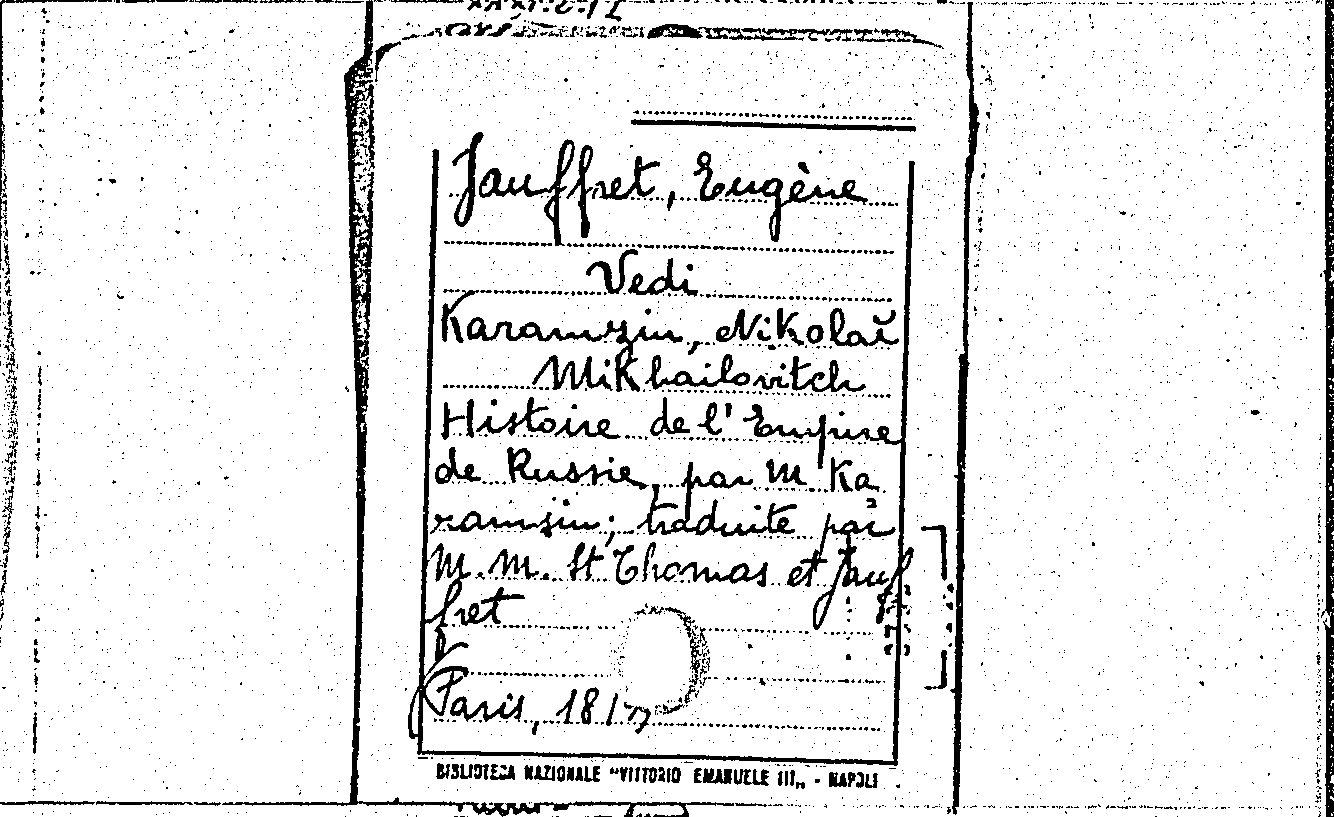 Jauffret, Eugène
Vedi
Karamzin, Nikolaï
Mikhailovitch
Histoire de l'Empire
de Russie, par M. Ka
ramsin; traduite par
M.M. St Thomas et Jauf
fret
Paris, 181
BIBLIOTECA NAZIONALE "VITTORIO EMANUELE III„ - NAPOLI